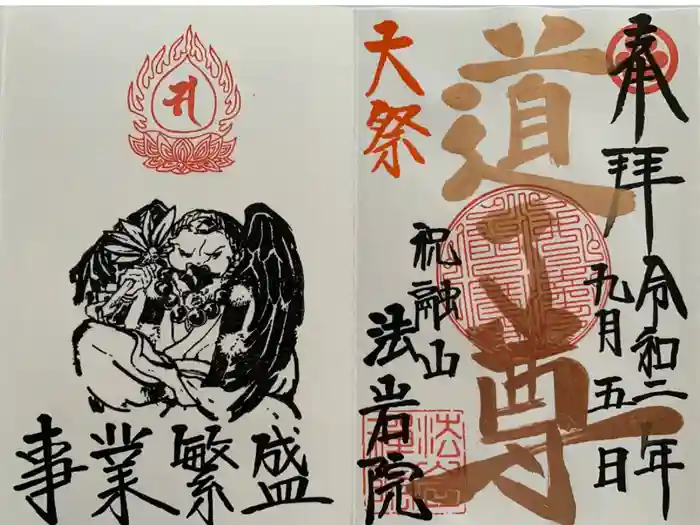 奉拝
令和二年
九月五日
道了尊
天祭
祝融山
法岩院
事業繁盛